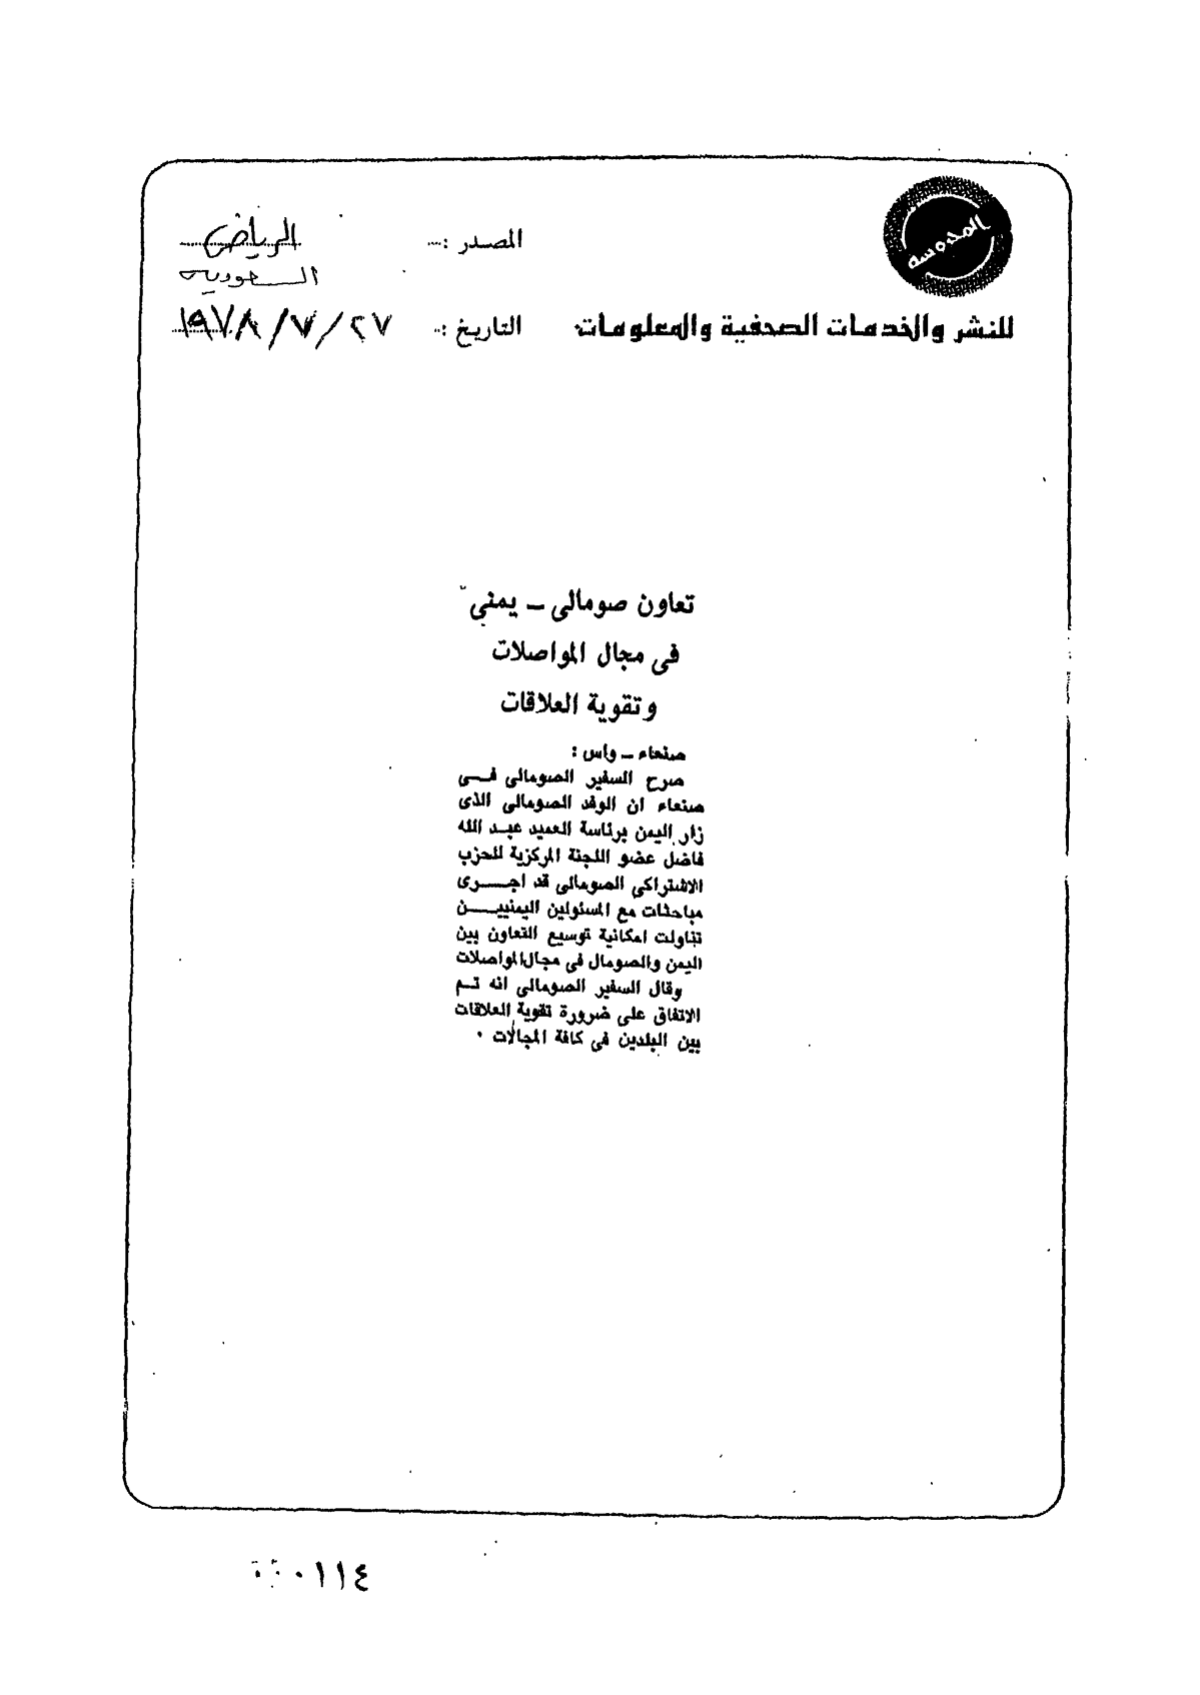 المدوسه
المصدر :
الرياض
السعودية
للنشر والخدمات الصحفية والمعلومات
التاريخ :
٢٧/٧/١٩٧٨
تعاون صومالى ــ يمنى
فى مجال المواصلات
وتقوية العلاقات
صنعاء ــ واس :
صرح السفير الصومالى فــى
صنعاء ان الوفد الصومالى الذى
زار اليمن برئاسة العميد عبـد الله
فاضل عضو اللجنة المركزية للحزب
الاشتراكى الصومالى قد اجــرى
مباحثات مع المسئولين اليمنييــن
تناولت امكانية توسيع التعاون بين
اليمن والصومال فى مجال المواصلات
وقال السفير الصومالى انه تـم
الاتفاق على ضرورة تقوية العلاقات
بين البلدين فى كافة المجالات ٠
٠١١٤